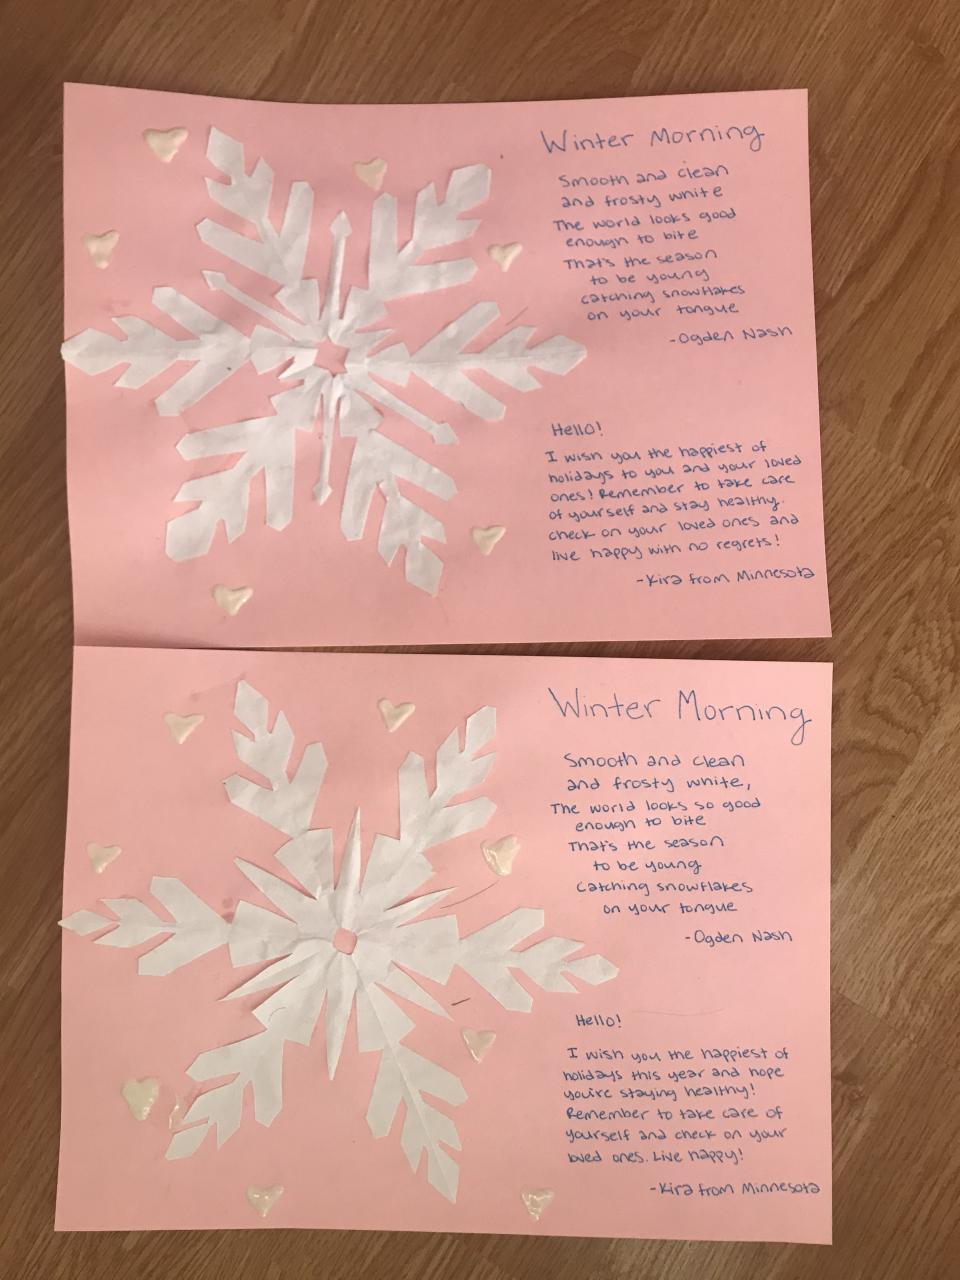 Winter Morning
Smooth and clean
and frosty white
The world looks good
enough to bite
That's the season
to be young
catching snowflakes
on your tongue
-Ogden Nash
Hello!
I wish you the happiest of
holidays to you and your loved
ones! Remember to take care
of yourself and stay healthy.
check on your loved ones and
live happy with no regrets!
-Kira from Minnesota
Winter Morning
Smooth and clean
and frosty white,
The world looks so good
enough to bite
That's the season
to be young
catching snowflakes
on your tongue
-Ogden Nash
Hello!
I wish you the happiest of
holidays this year and hope
you're staying healthy!
Remember to take care of
yourself and check on your
loved ones. Live happy!
-Kira from Minnesota